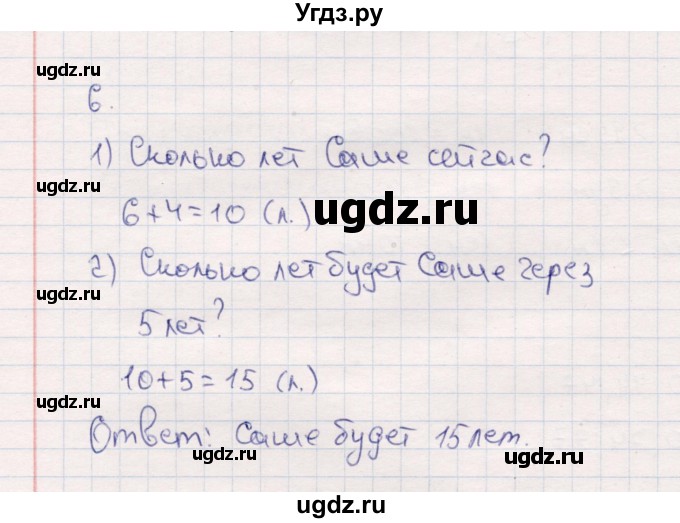 Угдз.ру
ugdz.ru ugdz.ru
6.
1) Сколько лет Саше сейчас?
ugdz.ru
6+4=10 (л.) ugdz.ru
ugdz.ru
2) Сколько лет будет Саше через
ugdz.ru
5 лет?
ugdz.ru
10+5=15 (л.)
ugdz.ru
Ответ: Саше будет 15 лет.
ugdz.ru ugdz.ru
ugdz.ru